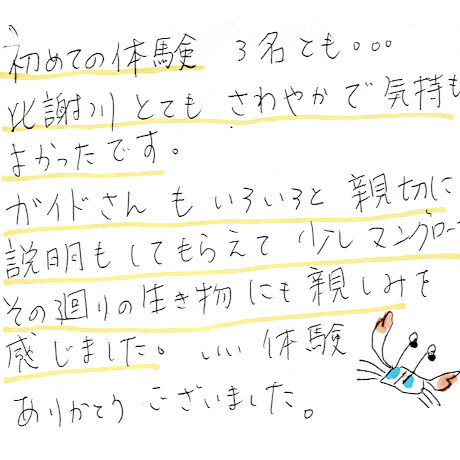 初めての体験 3名とも...
比謝川 とても さわやかで 気持も
よかったです。
ガイドさん も いろいろと 親切に
説明も してもらえて 少し マングロー
その廻りの生き物にも 親しみを
感じました。いい 体験
ありがとう ございました。